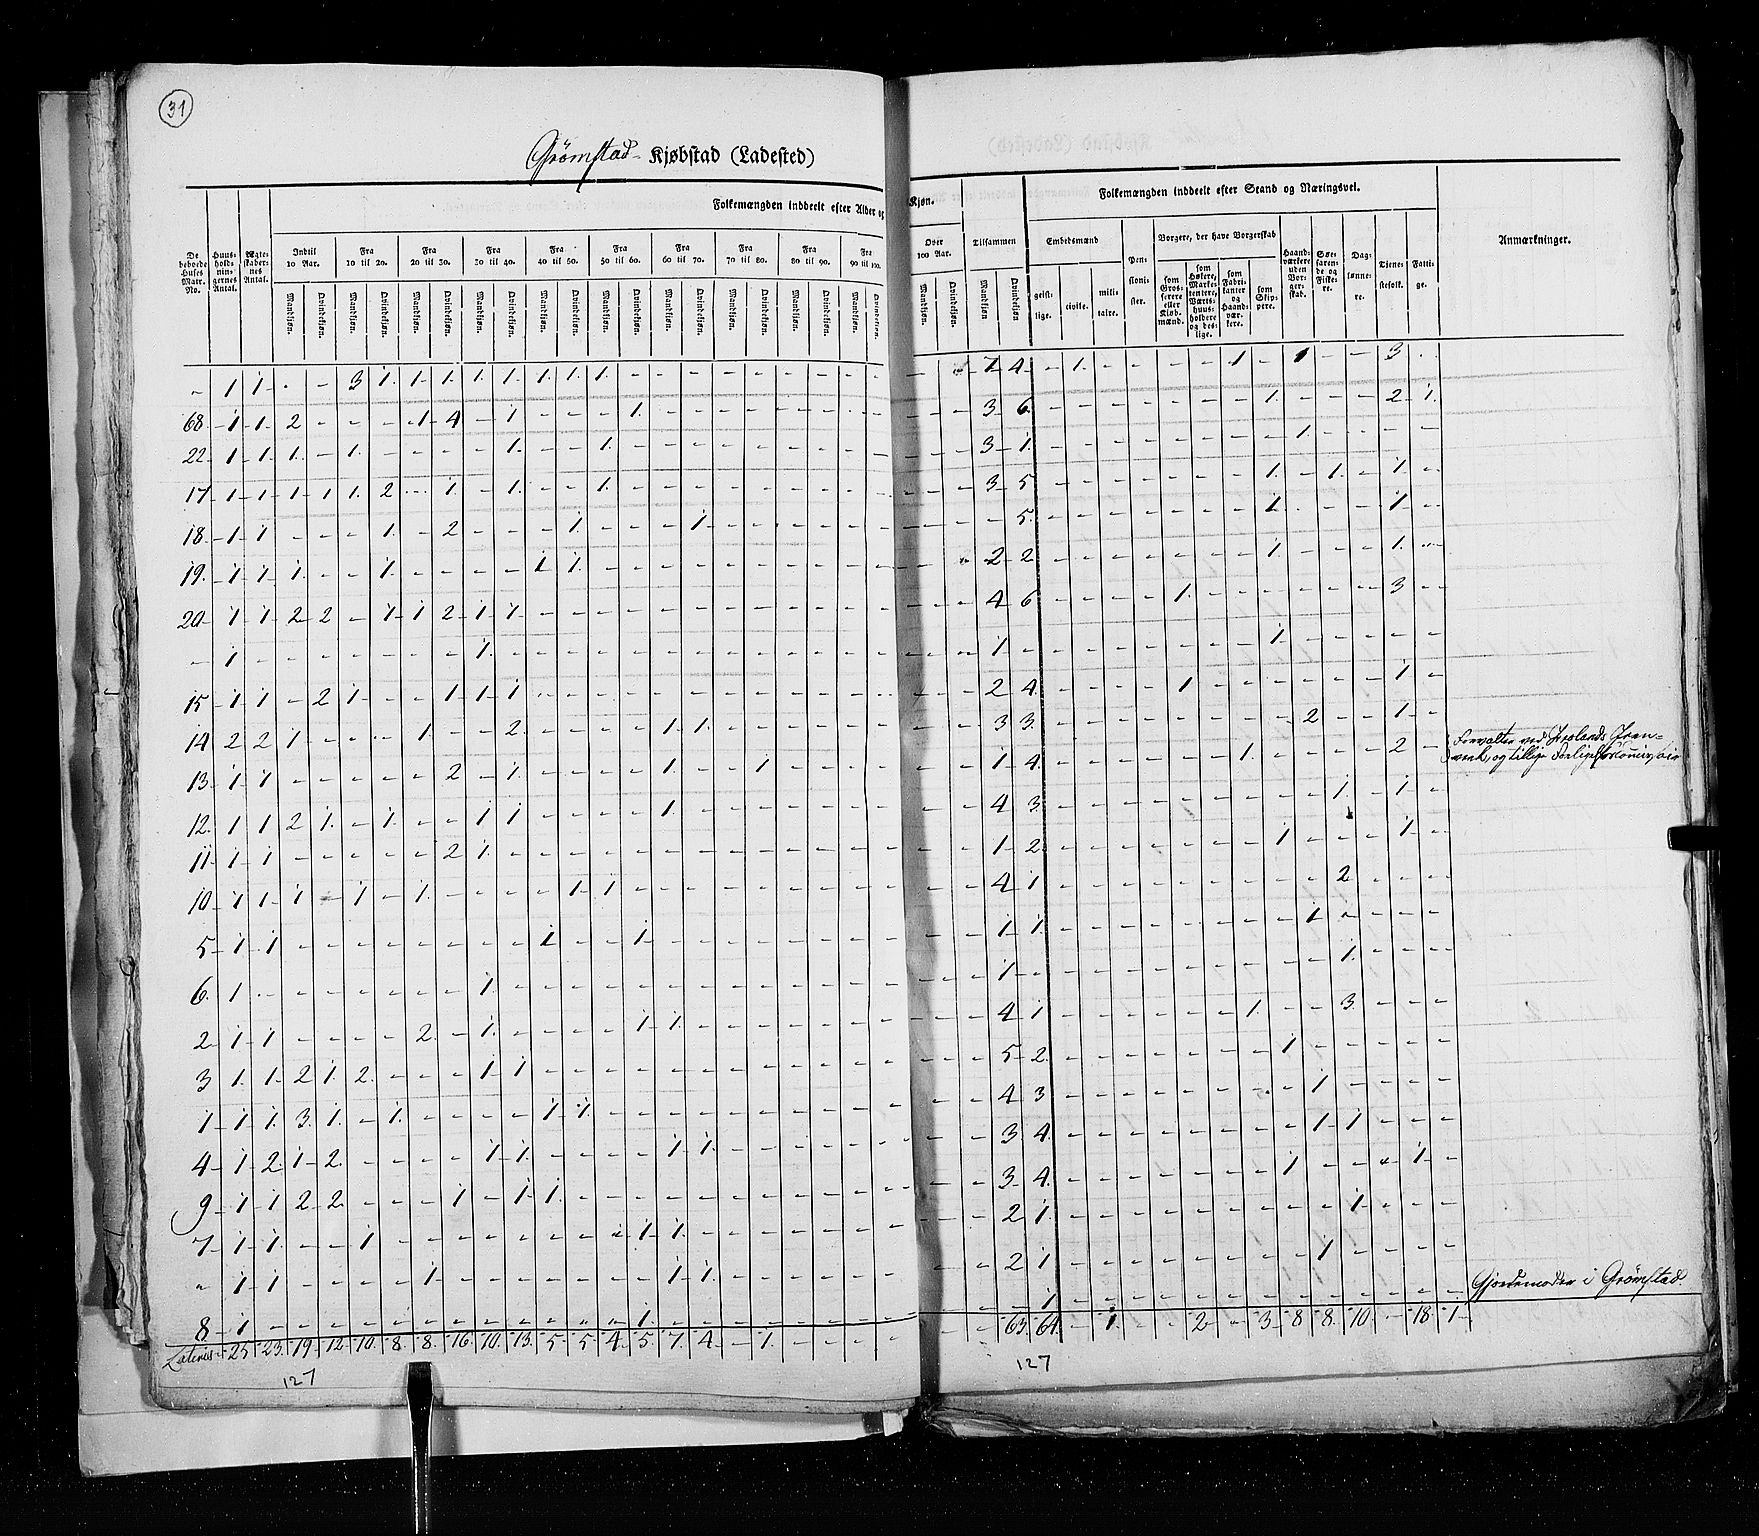 31
Grömstad Kjøbstad (Ladested)
Folkemængden inddeelt efter Alder og Kjøn.
Folkemængden inddeelt efter Stand og Næringsvei.
De beboede Huses Matr. No.
Huusholdningernes Antal.
Ægteskabernes Antal.
Indtil 10 Aar.
Fra 10 til 20.
Fra 20 til 30.
Fra 30 til 40.
Fra 40 til 50.
Fra 50 til 60.
Fra 60 til 70.
Fra 70 til 80.
Fra 80 til 90.
Fra 90 til 100.
Over 100 Aar.
Tilsammen
Mandkjøn. Qvindekjøn.
Embedsmænd
geistlige. civile. militaire.
Pensionister.
Borgere, der have Borgerskab
som Grosserere eller Kjøbmænd.
som Høkere, Marketentere, Værtshuusholdere og deslige.
som Fabrikanter og Haandværkere.
som Skippere.
Haandværkere uden Borgerskab.
Søefarende og Fiskere.
Daglønnere.
Tjenestefolk.
Fattige.
Anmærkninger.
" 1 1 - - 3 1 1 1 1 1 1 1 1 - - - - - - - - - - - 7 4 - 1 - - - - 1 - 1 - - 3 -
68 1 1 2 - - - 1 4 - 1 - - - 1 - - - - - - - - - - 3 6 - - - - - - - 1 - - - 2 1
22 1 1 1 - 1 - - - - 1 - - 1 - - - - - - - - - - - 3 1 - - - - - - - - 1 - - - -
17 1 1 1 1 1 2 - 1 - 1 - - 1 - - - - - - - - - - - 3 5 - - - - - - - 1 - 1 - 1 -
18 1 1 - - - 1 - 2 - - - 1 - - - 1 - - - - - - - - - 5 - - - - - - - 1 - - - 1 -
19 1 1 1 - - 1 - - - - 1 1 - - - - - - - - - - - - 2 2 - - - - - - - 1 - - - 1 -
20 1 1 2 2 - 1 1 2 1 1 - - - - - - - - - - - - - - 4 6 - - - - 1 - - - - - - 3 -
" 1 - - - - - - - 1 - - - - - - - - - - - - - - - 1 - - - - - - - - 1 - - - - -
15 1 1 - 2 1 - - 1 1 1 - - - - - - - - - - - - - - 2 4 - - - - 1 - - - - - - 1 -
14 2 2 1 - - - 1 - - 2 - - - - 1 1 - - - - - - - - 3 3 - - - - - - - - 2 - - 1 -
13 1 1 - - - - - 2 - 1 - - - - 1 - - 1 - - - - - - 1 4 - - - - - - 1 - - - - 2 -
12 1 1 2 1 - 1 - - 1 1 - - - - 1 - - - - - - - - - 4 3 - - - - - - - - - 1 - 1 -
11 1 1 - - - - - 2 1 - - - - - - - - - - - - - - - 1 2 - - - - - - - 1 - - - 1 -
10 1 1 1 - 1 - 1 - - - - 1 1 - - - - - - - - - - - 4 1 - - - - - - - - - 2 - - -
5 1 1 - - - - - - - - 1 - - 1 - - - - - - - - - - 1 1 - - - - - - - - 1 - - - -
6 1 - - - - - - - 1 - - - - - - - - - - - - - - - 1 - - - - - - - - - - 1 - - -
2 1 1 - - - - 2 - 1 - - - - 1 1 - - - - - - - - - 4 1 - - - - - - 1 - - 3 - - -
3 1 1 2 1 2 - - - 1 1 - - - - - - - - - - - - - - 5 2 - - - - - - - 1 - - - - -
1 1 1 3 1 - 1 - - - - 1 1 - - - - - - - - - - - - 4 3 - - - - - - - - 1 - - - -
4 1 2 1 2 - - - - 1 1 - - - - 1 1 - - - - - - - - 3 4 - - - - - - - - 1 1 - - -
9 1 1 2 2 - - - 1 - 1 1 - - - - - - - - - - - - - 3 4 - - - - - - - 1 - - - 1 -
7 1 1 - - 1 - - - - - - - - 1 1 - - - - - - - - - 2 1 - - - - - - - - - 1 - - -
" 1 1 - - - - 1 - - - - - - - 1 1 - - - - - - - - 2 1 - - - - - - - - 1 - - - -
8 1 - - - - - - - - - - - - 1 - - - - - - - - - - - 1 - - - - - - - - - - - - -
Forvalter ved
og tillige
Gjordemoder i Grömstad.
Lateris 25 23 19 12 10 8 8 16 10 13 5 5 4 5 7 4 - 1 - - - - - - 63 64 - 1 - - 2 - 3 8 8 10 - 18 1
127
127